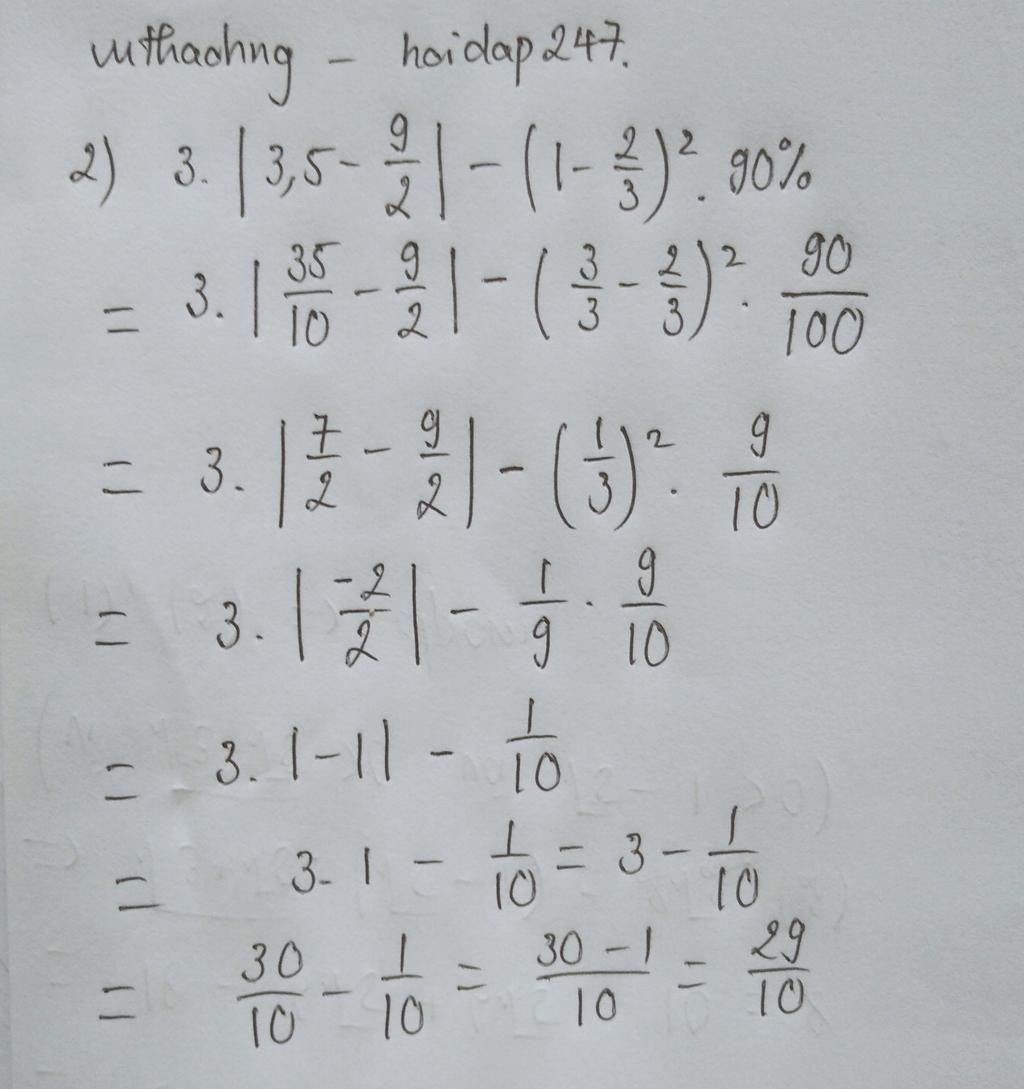 vuthaohng - hoidap247.
2) 3. |3,5 - 9/2| - (1 - 2/3)². 90%
= 3. |35/10 - 9/2| - (3/3 - 2/3)². 90/100
= 3. |7/2 - 9/2| - (1/3)². 9/10
= 3. |-2/2| - 1/9 . 9/10
= 3. |-1| - 1/10
= 3. 1 - 1/10 = 3 - 1/10
= 30/10 - 1/10 = (30 - 1)/10 = 29/10